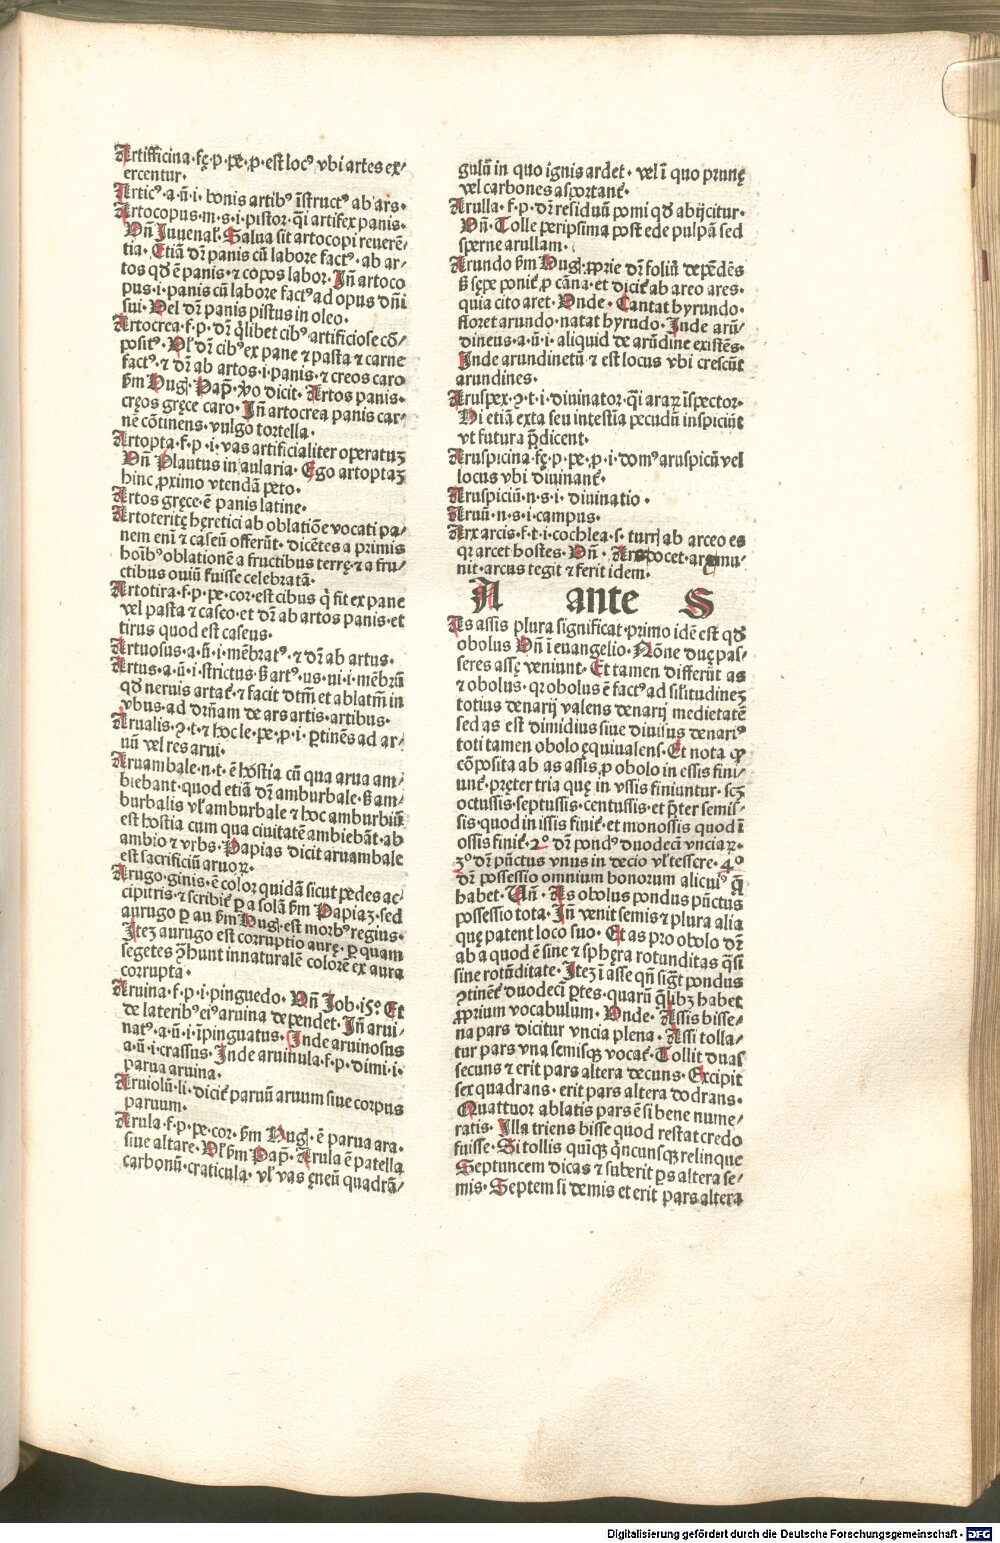 Artifficina·fę·p·pe·ꝓ·est locꝰ vbi artes ex/
ercentur·
Articꝰ·a·ū·i·bonis artibꝰ īstructꝰ ab ars·
Artocopus·m·s·i·pistor·q̄i artifex panis·
Vn̄ Juuenal̕·Salua sit artocopi reuerē/
tia·Etiā dr̄ panis cū labore factꝰ·ab ar/
tos qđ ē panis·⁊ copos labor·Jn̄ artoco
pus·i·panis cū labore factꝰ ad opus dn̄i
sui·Vel dr̄ panis pistus in oleo·
Artocrea·f·p·dr̄ q̄libet cibꝰ artificiose cō/
positꝰ·Vl̕ dr̄ cibꝰ ex pane ⁊ pasta ⁊ carne
factꝰ·⁊ dr̄ ab artos·i·panis·⁊ creos caro
ẜm Hug̕·Pap̄·ꝟo dicit·Artos panis·
cręos gręce caro·Jn̄ artocrea panis car/
nē cōtinens·vulgo tortella·
Artopta·f·p·i·vas artificialiter operatuꝫ
Vn̄ Plautus in aularia·Ego artoptaꝫ
hinc ꝓximo vtendā peto·
Artos gręce·ē panis latine·
Artoteritę hęretici ab oblatiōe vocati pa/
nem eni̅ ⁊ caseū offerūt·dicētes a primis
hoi̅bꝰ oblationē a fructibus terrę·⁊ a fru/
ctibus ouiū fuisse celebratā·
Artotira·f·p·pe·cor·est cibus q̄ fit ex pane
vel pasta ⁊ caseo·et dr̄ ab artos panis·et
tirus quod est caseus·
Artuosus·a·ū·i·mēbratꝰ·⁊ dr̄ ab artus·
Artus·a·ū·i·strictus·ẞ artꝰ·us·ui·i·mēbrū
qđ neruis artat̕·⁊ facit dtm̄ et ablatm̄ in
vbus·ad drn̄am de ars artis·artibus·
Arualis·ꝯ·t·⁊ hoc le·pe·ꝓ·i·ꝑtinēs ad ar/
uū vel res arui·
Aruambale·n·t·ē hostia cū qua arua am/
biebant·quod etiā dr̄ amburbale·ẞ am/
burbalis vl̕ amburbale ⁊ hoc amburbiū
est hostia cum qua ciuitatē ambiebāt·ab
ambio ⁊ vrbs·Papias dicit aruambale
est sacrificiū aruoꝝ·
Arugo·ginis·ē color quidā sicut pedes ac/
cipitris·⁊ scribit̕ ꝑ a solā ẜm Papiaꝫ·sed
aurugo ꝑ au ẜm Hug̕·est morbꝰ regius·
Jteꝫ aurugo est corruptio aurę·ꝑ quam
segetes ꝯhunt innaturalē colorē ex aura
corrupta·
Aruina·f·p·i·pinguedo·Vn̄ Job·i5°·Et
de lateribꝰ eiꝰ aruina dependet·Jn̄ arui/
natꝰ·a·ū·i·īpinguatus·Jnde aruinosus
a·ū·i·crassus·Jnde aruinula·f·p·dimi·i·
parua aruina·
Aruiolū·li·dicit̕ paruū aruum siue corpus
paruum·
Arula·f·p·pe·cor·ẜm Hug̕·ē parua ara·
siue altare·Vl̕ ẜm Pap̄·Arula ē patella
carbonū·craticula·vl̕ vas ęneū quadrā/
gulū in quo ignis ardet·vel ī quo prunę
vel carbones asportant̕·
Arulla·f·p·dr̄ residuū pomi qđ abijcitur·
Vn̄·Tolle peripsima post ede pulpā sed
sperne arullam·
Arundo ẜm Hug̕·ꝓprie dr̄ foliū depēdēs
ẞ sępe ponit̕ ꝓ cāna·et dicit̕ ab areo ares·
quia cito aret·Vnde·Cantat hyrundo·
floret arundo·natat hyrudo·Jnde arū/
dineus·a·ū·i·aliquid de arūdine existēs·
Jnde arundinetū ⁊ est locus vbi crescūt
arundines·
Aruspex·ꝯ·t·i·diuinator·q̄i araꝝ īspector·
Hi etiā exta seu intestīa pecudū inspiciūt
vt futura p̄dicent·
Aruspicina·fę·p·pe·ꝓ·i·domꝰ aruspicū vel
locus vbi diuinant̕·
Aruspiciū·n·s·i·diuinatio·
Aruū·n·s·i·campus·
Arx arcis·f·t·i·cochlea·s·turrꝭ ab arceo es
qꝛ arcet hostes·Vn̄·Ars docet·arx mu/
nit·arcus tegit ⁊ ferit idem·
A ante S
As assis plura significat·primo idē est qđ
obolus Vn̄ ī euangelio·Nōne duę pas/
seres assę veniunt·Et tamen differūt as
⁊ obolus·qꝛ obolus ē factꝰ ad sil̕itudineꝫ
totius denarij valens denarij medietatē
sed as est dimidius siue diuisus denariꝰ
toti tamen obolo ęquiualens·Et nota ꝙ
cōposita ab as assis ꝓ obolo in essis fini/
unt̕·pręter tria quę in vssis finiuntur·scꝫ
octussis·septussis·centussis·et p̄ter semis/
sis·quod in issis finit̕·et monossis quod ī
ossis finit̕·2°·dr̄ pondꝰ duodecī vnciaꝝ·
3°·dr̄ pūctus vnus in decio vl̕ tessere·4°
dr̄ possessio omnium bonorum alicuiꝰ q̄
habet·Vn̄·As obolus pondus pūctus
possessio tota·Jn̄ venit semis ⁊ plura alia
quę patent loco suo·Et as pro obolo dr̄
ab a quod ē sine ⁊ sphęra rotunditas q̄si
sine rotūditate·Jteꝫ ī asse qn̄ sig̅t pondus
ꝯtinēt̕ duodecī ꝑtes·quarū q̄libꝫ habet
ꝓprium vocabulum·Vnde·Assis bisse/
na pars dicitur vncia plena·Assi tolla/
tur pars vna semisqꝫ vocat̕·Tollit duas
secuns ⁊ erit pars altera decuns·Excipit
sex quadrans·erit pars altera dodrans·
Quattuor ablatis pars ē si bene nume/
ratis·Jlla triens bisse quod restat credo
fuisse·Si tollis quīqꝫ q̄ncunsqꝫ relinque
Septuncem dicas ⁊ suberit ꝑs altera se/
mis·Septem si demis et erit pars altera
Digitalisierung gefördert durch die Deutsche Forschungsgemeinschaft - DFG